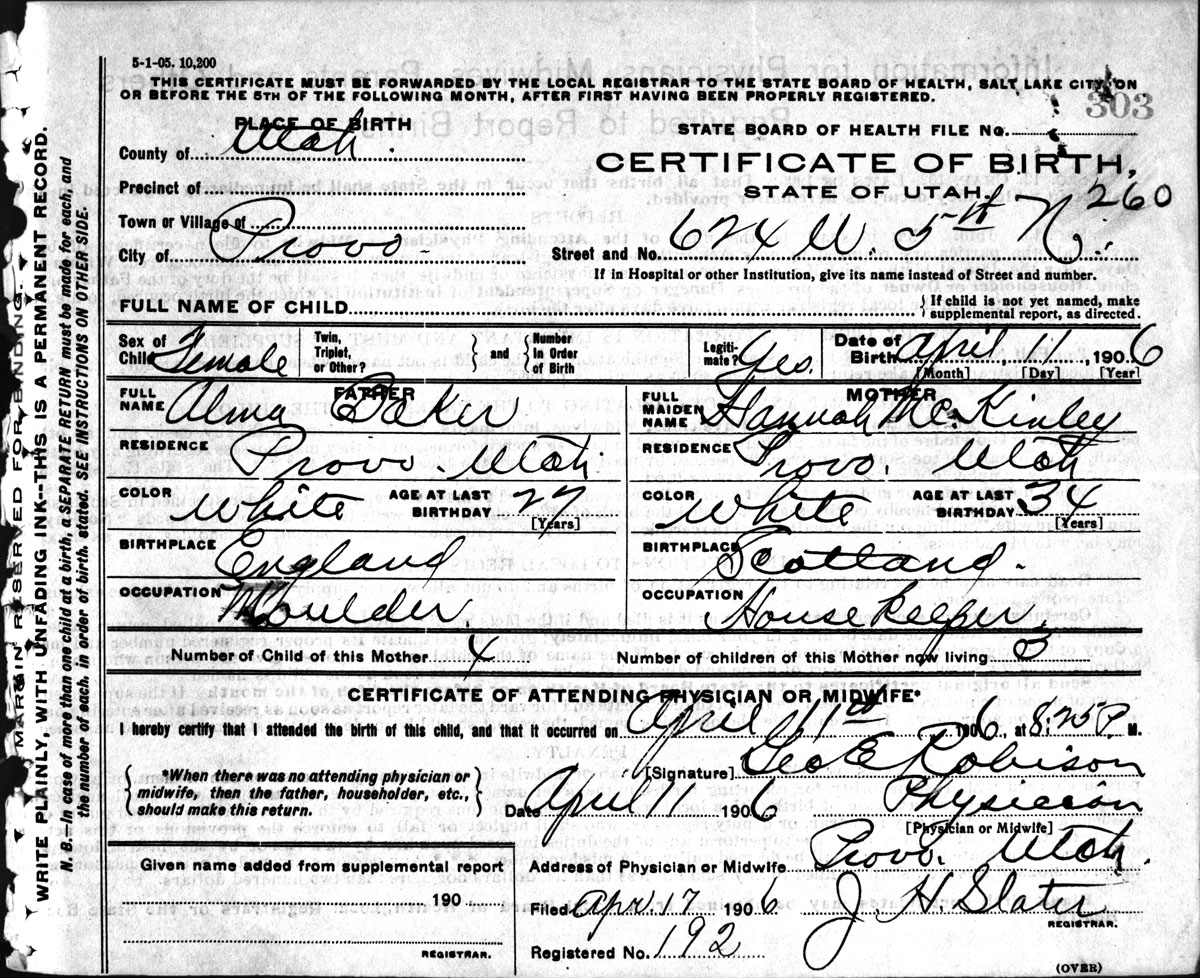 5-1-05. 10,200
THIS CERTIFICATE MUST BE FORWARDED BY THE LOCAL REGISTRAR TO THE STATE BOARD OF HEALTH, SALT LAKE CITY, ON
OR BEFORE THE 5TH OF THE FOLLOWING MONTH, AFTER FIRST HAVING BEEN PROPERLY REGISTERED.
303
PLACE OF BIRTH
STATE BOARD OF HEALTH FILE No.
County of Utah.
CERTIFICATE OF BIRTH,
STATE OF UTAH.
260
Precinct of
Town or Village of
City of Provo.
Street and No. 624 W. 5th N.
If in Hospital or other Institution, give its name instead of Street and number.
FULL NAME OF CHILD
} If child is not yet named, make
supplemental report, as directed.
Sex of Child Female
Twin, Triplet, or Other? } and { Number in Order of Birth
Legiti-mate? Yes.
Date of Birth April 11 1906
[Month] [Day] [Year]
FATHER
FULL NAME Alma Baker
RESIDENCE Provo. Utah.
COLOR White AGE AT LAST BIRTHDAY 27 [Years]
BIRTHPLACE England
OCCUPATION Moulder
MOTHER
FULL MAIDEN NAME Hannah McKinley
RESIDENCE Provo. Utah
COLOR White AGE AT LAST BIRTHDAY 34 [Years]
BIRTHPLACE Scotland.
OCCUPATION House Keeper,
Number of Child of this Mother 4
Number of children of this Mother now living
CERTIFICATE OF ATTENDING PHYSICIAN OR MIDWIFE*
I hereby certify that I attended the birth of this child, and that it occurred on April 11th 1906, at 8:25 P. M.
{ *When there was no attending physician or
midwife, then the father, householder, etc.,
should make this return. }
[Signature] Geo E Robison
Date April 11 1906 Physician
[Physician or Midwife]
Address of Physician or Midwife Provo. Utah.
Given name added from supplemental report
190
REGISTRAR.
Filed Apr. 17 1906 J. H. Slater
REGISTRAR.
Registered No. 192
(OVER)
MARGIN RESERVED FOR BINDING.
WRITE PLAINLY, WITH UNFADING INK—THIS IS A PERMANENT RECORD.
N. B.—In case of more than one child at a birth, a SEPARATE RETURN must be made for each, and
the number of each, in order of birth, stated. SEE INSTRUCTIONS ON OTHER SIDE.